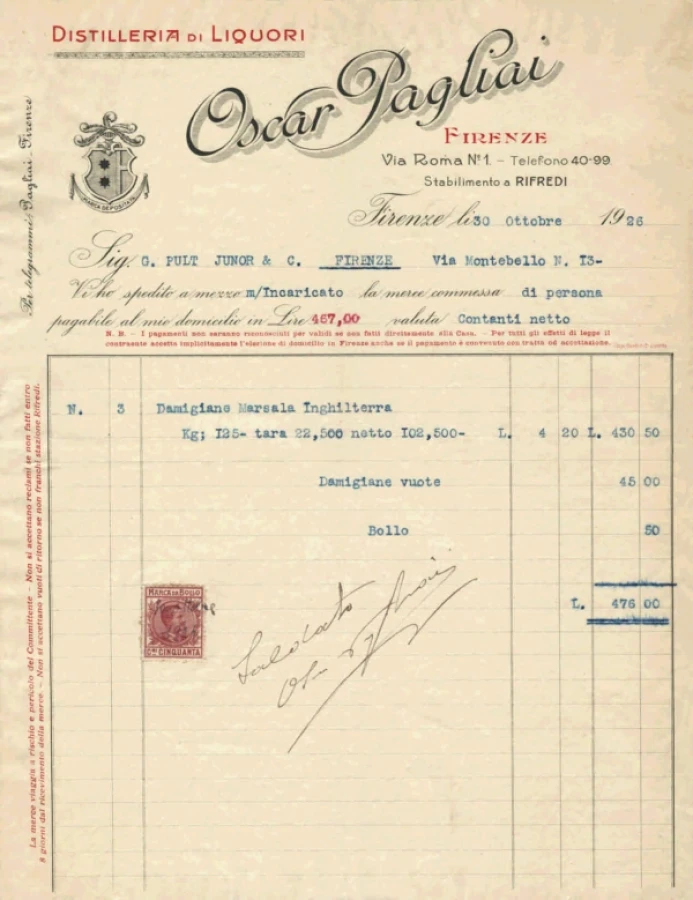 DISTILLERIA DI LIQUORI
Oscar Pagliai
FIRENZE
Via Roma Nº1. - Telefono 40-99
Stabilimento a RIFREDI
Per telegrammi: Pagliai-Firenze
MARCA DEPOSITATA
Firenze li 30 Ottobre 1926
Sig. G. PULT JUNOR & C. FIRENZE Via Montebello N. I3-
Vi ho spedito a mezzo m/Incaricato la merce commessa di persona
pagabile al mio domicilio in Lire 457,00 valuta Contanti netto
N. B. - I pagamenti non saranno riconosciuti per validi se non fatti direttamente alla Casa. - Per tutti gli effetti di legge il
contraente accetta implicitamente l'elezione di domicilio in Firenze anche se il pagamento è convenuto con tratta od accettazione.
N. 3 Damigiane Marsala Inghilterra
Kg; I25- tara 22,500 netto I02,500- L. 4 20 L. 430 50
Damigiane vuote 45 00
Bollo 50
L. 476 00
MARCA DA BOLLO
CMI CINQUANTA
Saldato
La merce viaggia a rischio e pericolo del Committente - Non si accettano reclami se non fatti entro
8 giorni dal ricevimento della merce. - Non si accettano vuoti di ritorno se non franchi stazione Rifredi.